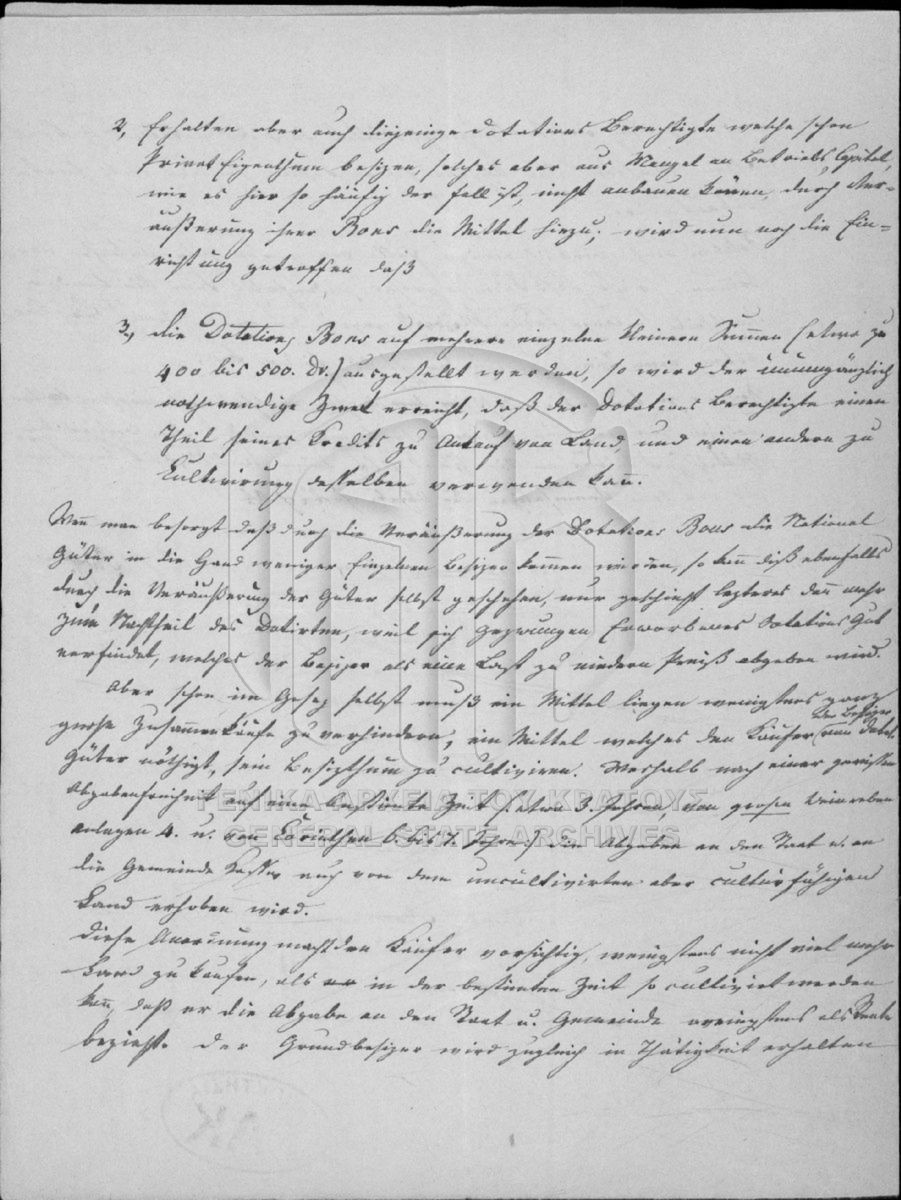 2, Erhalten aber auch diejenige Dotations Berechtigte welche schon
Privat Eigenthum besizen, solches aber aus Mangel an Betriebs Capital,
wie es hier so häufig der Fall ist, nicht anbauen können, durch Ver=
äußerung ihrer Bons die Mittel hiezu; wird nun noch die Ein=
richtung getroffen daß
3., die Dotations Bons auf mehrere einzelne kleinere Summen (etwa zu
400 bis 500. Dr.) ausgestellt werden, so wird der unumgänglich
nothwendige Zwek erreicht, daß der Dotations Berechtigte einen
Theil seines Kredits zu Ankauf von Land, und einen andern zu
Cultivirung desselben verwenden kann.
Wenn man besorgt daß durch die Veräußerung der Dotations Bons die National
Güter in die Hand weniger Einzelnen Besizer kommen würden, so kann diß ebenfalls
durch die Veräußerung der Güter selbst geschehen, nur geschieht lezteres dann mehr
zum Nachtheil des Dotirten, weil sich gezwungen Erworbenes Dotations Gut
vorfindet, welches der Besizer als eine Last zu niedern Preiß abgeben wird.
Aber schon im Gesez selbst muß ein Mittel liegen wenigstens ganz
große Zusammenkäufe zu verhindern, ein Mittel welches den Käufer (den Besizer von Dotat.
Güter nöthigt, sein Besizthum zu cultiviren. Weshalb nach einer gewissen
Abgabenfreiheit auf eine bestimte Zeit (: etwa 3. Jahren, von großen Weinreben
anlagen 4. u. von Corinthen 6 bis 7. Jahre:) die Abgaben an den Staat u. an
die Gemeinde Kasse auch von dem uncultivirten aber culturfähigen
Land erhoben wird.
Diese Anordnung macht den Käufer vorsichtig, wenigstens nicht viel mehr
Land zu kaufen, als er in der bestimten Zeit so cultivirt werden
kann, daß er die Abgabe an den Staat u. Gemeinde wenigstens als Rente
bezieht. Der Grundbesizer wird zugleich in Thätigkeit erhalten
ΓΕΝΙΚΑ ΑΡΧΕΙΑ ΤΟΥ ΚΡΑΤΟΥΣ
GENERAL STATE ARCHIVES